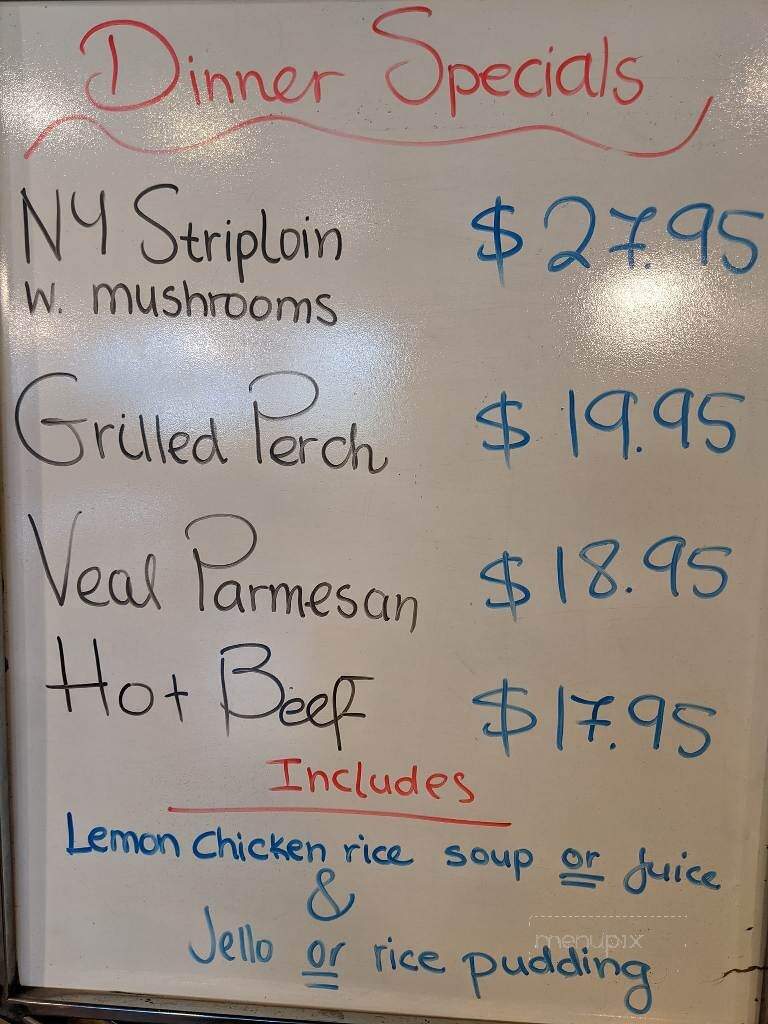 Dinner Specials
NY Striploin $27.95
w. mushrooms
Grilled Perch $19.95
Veal Parmesan $18.95
Hot Beef $17.95
Includes
Lemon chicken rice soup or juice
&
Jello or rice pudding
menupix